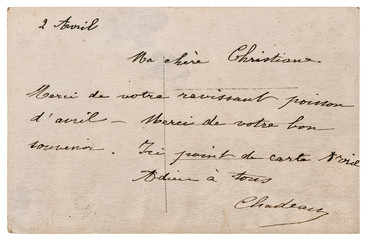 2 Avril
Ma chère Christiane
Merci de votre ravissant poisson
d'avril — Merci de votre bon
souvenir. Ici point de carte d'Avril
Adieu à tous